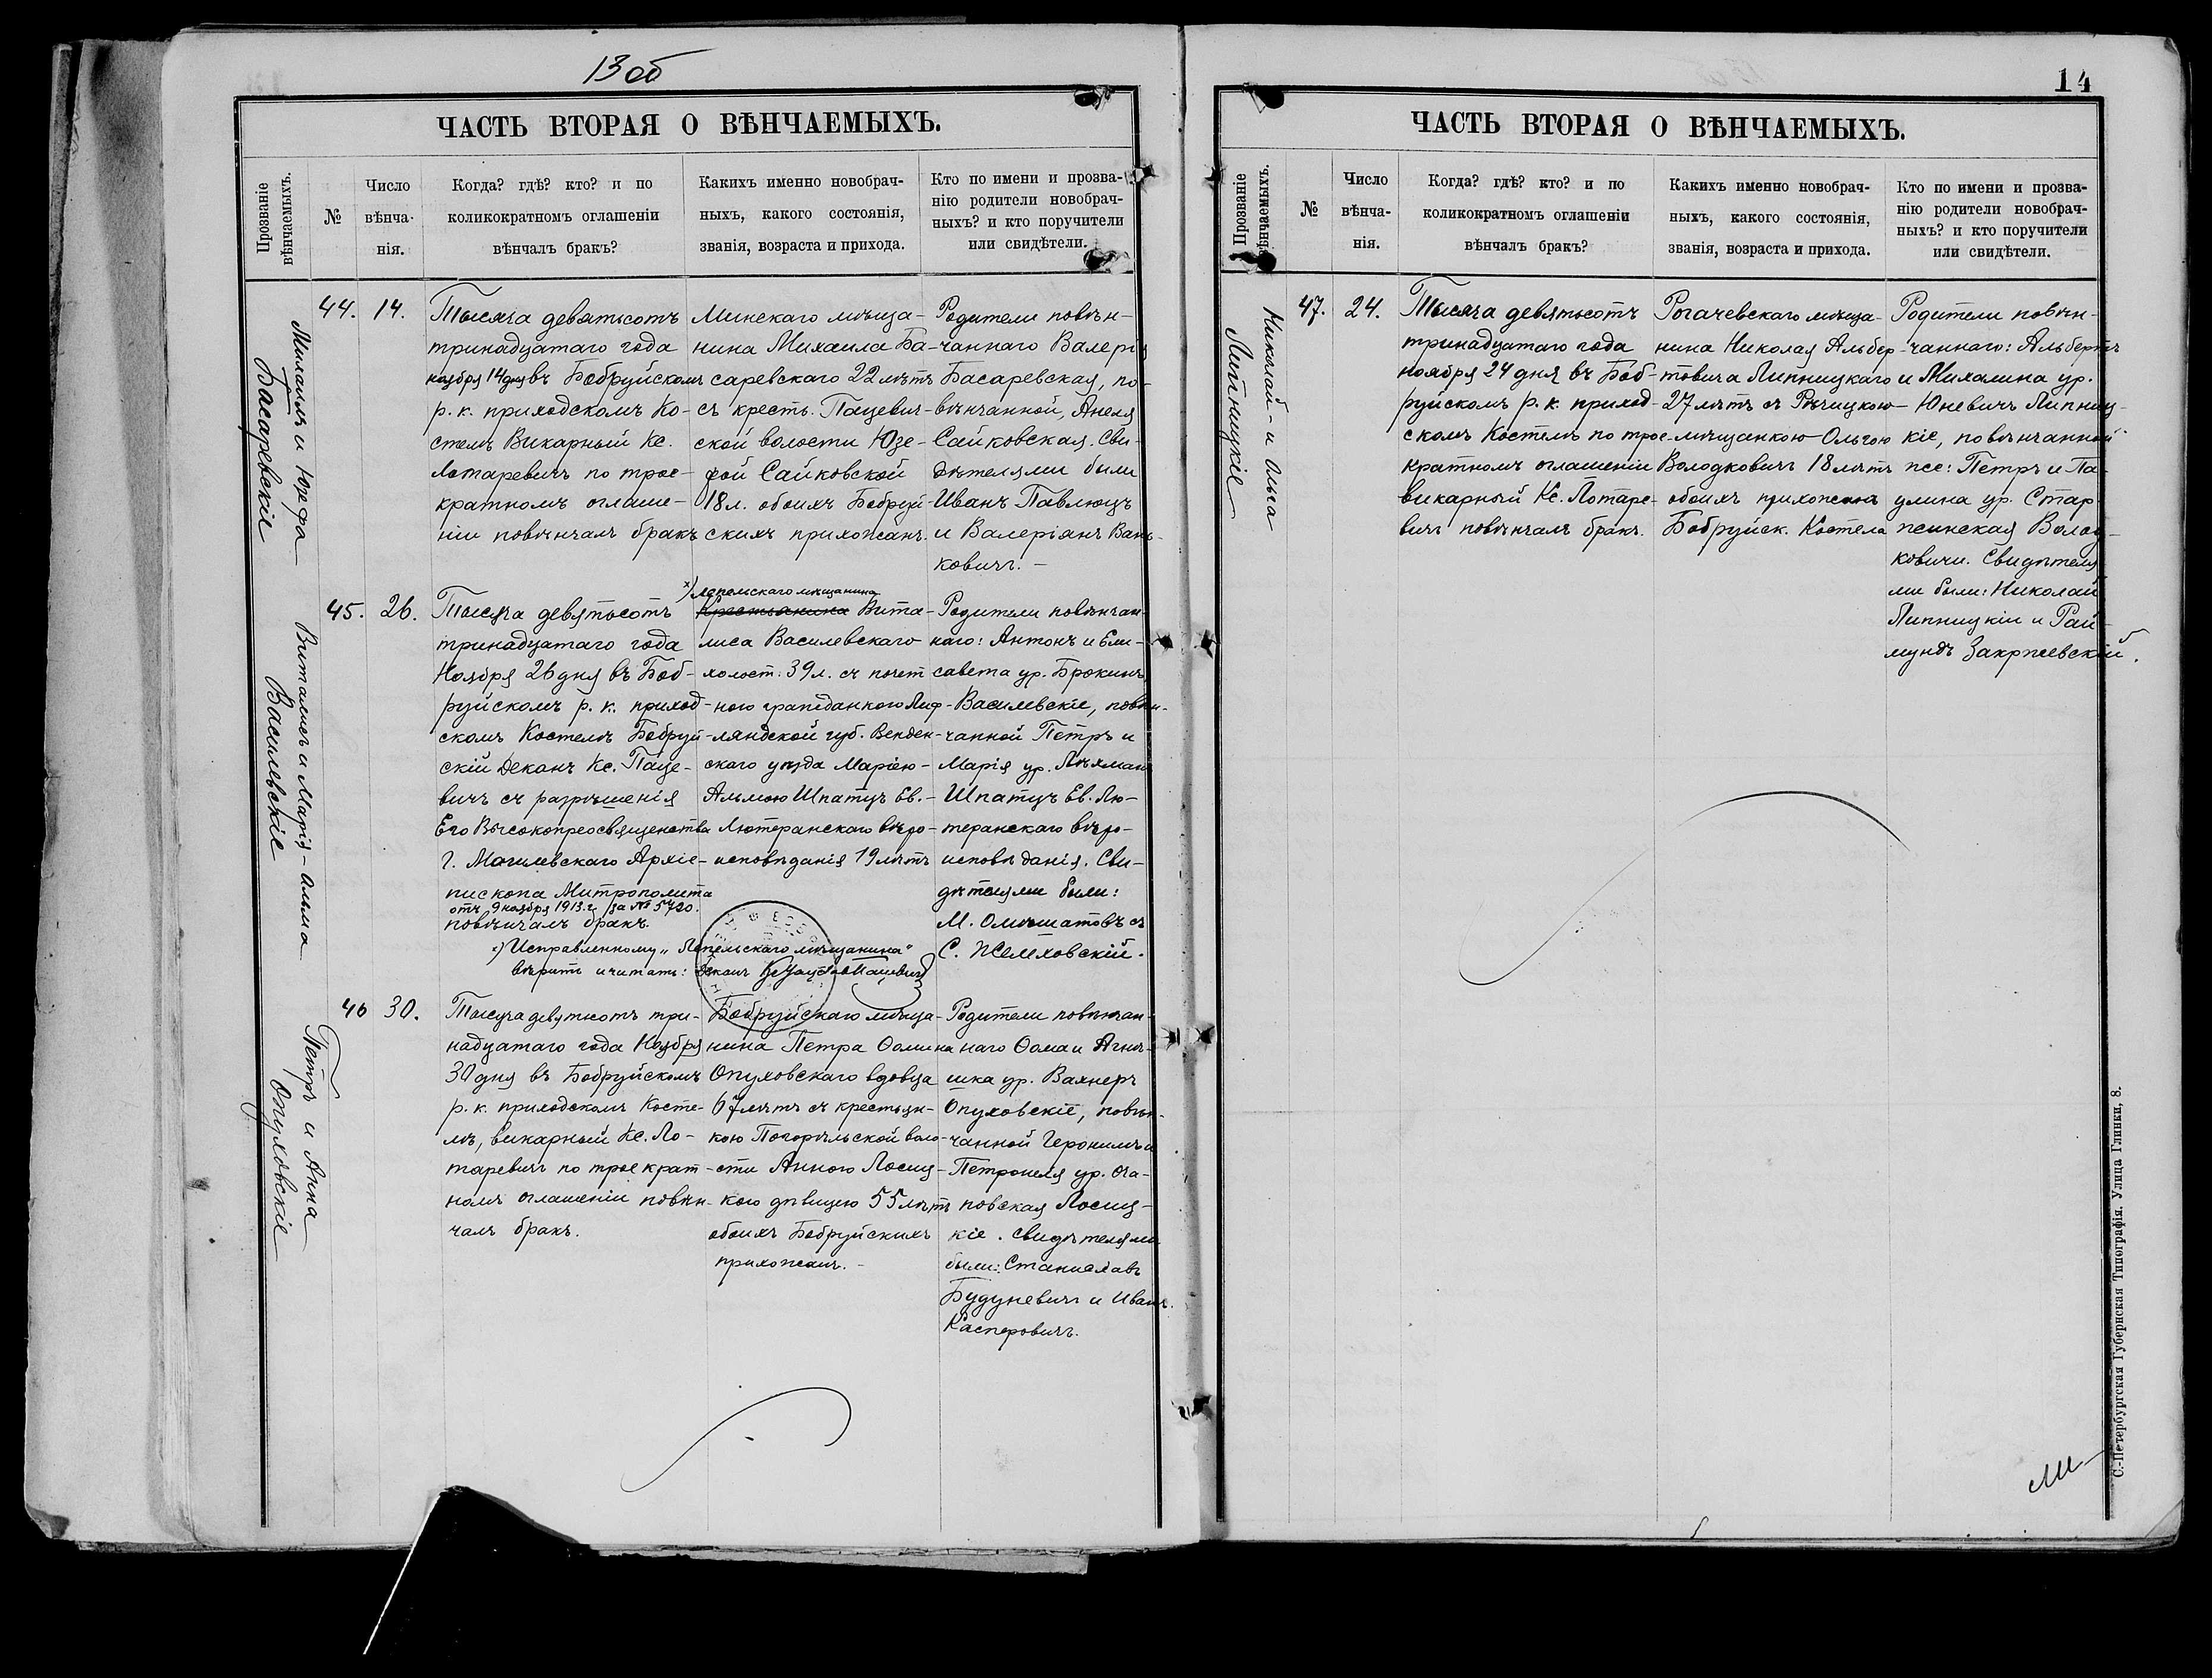 13 об
ЧАСТЬ ВТОРАЯ О ВѢНЧАЕМЫХЪ.
Прозваніе
вѣнчаемыхъ.
№
Число
вѣнча-
нія.
Когда? гдѣ? кто? и по
коликократномъ оглашеніи
вѣнчалъ бракъ?
Какихъ именно новобрач-
ныхъ, какого состоянія,
званія, возраста и прихода.
Кто по имени и прозва-
нію родители новобрач-
ныхъ? и кто поручители
или свидѣтели.
Михаилъ и Юзефа
Басаревскіе
44.
14.
Тысяча девятьсотъ
тринадцатаго года
ноября 14 дня въ Бобруйскомъ
р. к. приходскомъ Ко-
стелѣ Викарный Кс.
Лотаревичъ по трое-
кратномъ оглаше-
ніи повѣнчалъ бракъ
Минскаго мѣща-
нина Михаила Ба-
саревскаго 22 лѣтъ
съ кресть. Пацевич-
ской волости Юзе-
фой Сайковской
18 л. обоихъ Бобруй-
скихъ прихожанъ.
Родители повѣн-
чаннаго Валерія
Басаревская, по-
вѣнчанной, Анеля
Сайковская. Сви-
дѣтелями были
Иванъ Павлюцъ
и Валеріанъ Вань-
ковичъ. –
Виталисъ и Марія-Альма
Василевскіе
45.
26.
Тысяча девятьсотъ
тринадцатаго года
Ноября 26 дня въ Боб-
руйскомъ р. к. приход-
скомъ Костелѣ Бобруй-
скій Деканъ Кс. Паце-
вичъ съ разрѣшенія
Его Высокопреосвященства
Г. Могилевскаго Архіе-
пископа Митрополита
отъ 9 ноября 1913 г. за № 5720.
повѣнчалъ бракъ.
x) Лепельскаго мѣщанина
Крестьянина Вита-
лиса Василевскаго
холост. 39 л. съ почет
ного гражданкого Лиф-
ляндской губ. Венден-
скаго уѣзда Маріею-
Альмою Шпатцъ Ев.-
Лютеранскаго вѣро-
исповѣданія 19 лѣтъ
Родители повѣнчан-
наго: Антонъ и Ели-
савета ур. Брокинъ
Василевскіе, повѣн-
чанной Петръ и
Марія ур. Лѣхманъ
Шпатцъ Ев. Лю-
теранскаго вѣро-
исповѣданія. Сви-
дѣтелями были:
М. съ
С. Желеховскій.
x) Исправленному „Лепельскаго мѣщанина"
вѣрить и читать: Деканъ Кс. Пацевичъ
Петръ и Анна
Опуховскіе
46
30.
Тысяча девятьсотъ три-
надцатаго года Ноября
30 дня въ Бобруйскомъ
р. к. приходскомъ Косте-
лѣ, викарный Кс. Ло-
таревичъ по троекрат-
номъ оглашеніи повѣн-
чалъ бракъ.
Бобруйскаго мѣща-
нина Петра Ѳомина
Опуховскаго вдовца
67 лѣтъ съ крестьян-
кою Погорѣльской воло-
сти Анною Лосиц-
кою дѣвицею 55 лѣтъ
обоихъ Бобруйскихъ
прихожанъ. –
Родители повѣнчан-
наго Ѳома и Агнѣ-
шка ур. Вахнеръ
Опуховскіе, повѣн-
чанной Іеронимъ и
Петронеля ур.
Лосиц-
кіе. Свидѣтелями
были: Станиславъ
Будуневичъ и Иванъ
Касперовичъ.
14
ЧАСТЬ ВТОРАЯ О ВѢНЧАЕМЫХЪ.
Прозваніе
вѣнчаемыхъ.
№
Число
вѣнча-
нія.
Когда? гдѣ? кто? и по
коликократномъ оглашеніи
вѣнчалъ бракъ?
Какихъ именно новобрач-
ныхъ, какого состоянія,
званія, возраста и прихода.
Кто по имени и прозва-
нію родители новобрач-
ныхъ? и кто поручители
или свидѣтели.
Николай и Ольга
Липницкіе
47.
24.
Тысяча девятьсотъ
тринадцатаго года
ноября 24 дня въ Боб-
руйскомъ р. к. приход-
скомъ Костелѣ по трое-
кратномъ оглашеніи
викарный Кс. Лотаре-
вичъ повѣнчалъ бракъ.
Рогачевскаго мѣща-
нина Николая Альбер-
товича Липницкаго
27 лѣтъ съ Рѣчицкою
мѣщанкою Ольгою
Володковичъ 18 лѣтъ
обоихъ прихожанъ
Бобруйск. Костела
Родители повѣн-
чаннаго: Альбертъ
и Михалина ур.
Юневичъ Липниц-
кіе, повѣнчанной
же: Петръ и Па-
улина ур. Стар-
жинская Волод-
ковичи. Свидѣтеля
ми были: Николай
Липницкій и Рай-
мундъ Закржевскій.
С.-Петербургская Губернская Типографія. Улица Глинки, 8.